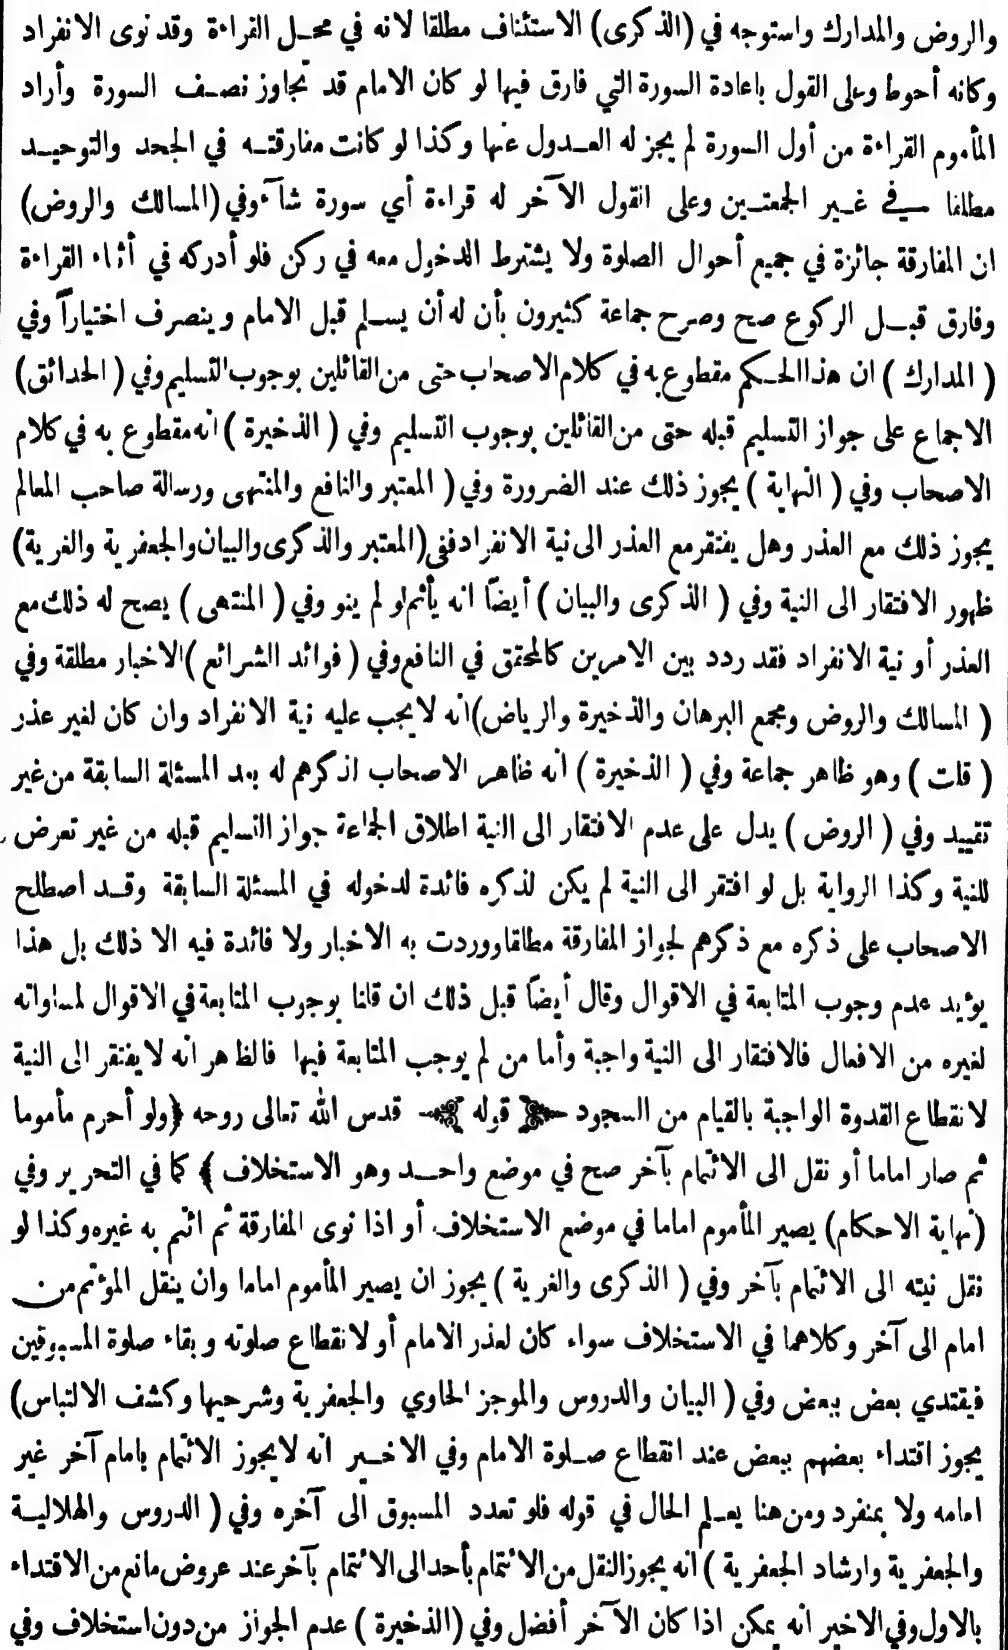 والروض والمدارك واستوجه في (الذكرى) الاستئناف مطلقا لانه في محل القراءة وقد نوى الانفراد
وكانه أحوط وعلى القول باعادة السورة التي فارق فيها لو كان الامام قد تجاوز نصف السورة وأراد
المأموم القراءة من أول السورة لم يجز له العدول عنها وكذا لو كانت مفارقته في الجحد والتوحيد
مطلقا في غير الجمعتين وعلى القول الآخر له قراءة أي سورة شاء وفي (المسالك والروض)
ان المفارقة جائزة في جميع أحوال الصلوة ولا يشترط الدخول معه في ركن فلو أدركه في أثناء القراءة
وفارق قبل الركوع صح وصرح جماعة كثيرون بأن له أن يسلم قبل الامام وينصرف اختياراً وفي
( المدارك ) ان هذا الحكم مقطوع به في كلام الاصحاب حتى من القائلين بوجوب التسليم وفي ( الحدائق)
الاجماع على جواز التسليم قبله حتى من القائلين بوجوب التسليم وفي ( الذخيرة ) انه مقطوع به في كلام
الاصحاب وفي ( النهاية ) يجوز ذلك عند الضرورة وفي ( المعتبر والنافع والمنتهى ورسالة صاحب المعالم
يجوز ذلك مع العذر وهل يفتقر مع العذر الى نية الانفراد ففي (المعتبر والذكرى والبيان والجعفرية والغرية)
ظهور الافتقار الى النية وفي ( الذكرى والبيان ) أيضاً انه يأثم لو لم ينو وفي ( المنتهى ) يصح له ذلك مع
العذر أو نية الانفراد فقد ردد بين الامرين كالمحقق في النافع وفي ( فوائد الشرائع ) الاخبار مطلقة وفي
( المسالك والروض ومجمع البرهان والذخيرة والرياض) انه لا يجب عليه نية الانفراد وان كان لغير عذر
( قلت ) وهو ظاهر جماعة وفي ( الذخيرة ) أنه ظاهر الاصحاب لذكرهم له بعد المسئلة السابقة من غير
تقييد وفي ( الروض ) يدل على عدم الافتقار الى النية اطلاق الجماعة جواز التسليم قبله من غير تعرض
للنية وكذا الرواية بل لو افتقر الى النية لم يكن لذكره فائدة لدخوله في المسئلة السابقة وقد اصطلح
الاصحاب على ذكره مع ذكرهم لجواز المفارقة مطلقا ووردت به الاخبار ولا فائدة فيه الا ذلك بل هذا
يؤيد عدم وجوب المتابعة في الاقوال وقال أيضاً قبل ذلك ان قلنا بوجوب المتابعة في الاقوال لمساواته
لغيره من الافعال فالافتقار الى النية واجبة وأما من لم يوجب المتابعة فيها فالظاهر انه لا يفتقر الى النية
لانقطاع القدوة الواجبة بالقيام من السجود قوله قدس الله تعالى روحه ﴿ولو أحرم مأموما
ثم صار اماما أو نقل الى الائتمام بآخر صح في موضع واحد وهو الاستخلاف ﴾ كما في التحرير وفي
(نهاية الاحكام) يصير المأموم اماما في موضع الاستخلاف أو اذا نوى المفارقة ثم ائتم به غيره وكذا لو
نقل نيته الى الائتمام بآخر وفي ( الذكرى والغرية ) يجوز ان يصير المأموم اماما وان ينقل المؤتم من
امام الى آخر وكلاهما في الاستخلاف سواء كان لعذر الامام أو لانقطاع صلوته وبقاء صلوة المسبوقين
فيقتدي بعض ببعض وفي ( البيان والدروس والموجز الحاوي والجعفرية وشرحيها وكشف الالتباس)
يجوز اقتداء بعضهم ببعض عند انقطاع صلوة الامام وفي الاخير انه لا يجوز الائتمام بامام آخر غير
امامه ولا بمنفرد ومن هنا يعلم الحال في قوله فلو تعدد المسبوق الى آخره وفي ( الدروس والهلالية
والجعفرية وارشاد الجعفرية ) انه يجوز النقل من الائتمام بأحد الى الائتمام بآخر عند عروض مانع من الاقتداء
بالاول وفي الاخير انه يمكن اذا كان الآخر أفضل وفي (الذخيرة ) عدم الجواز من دون استخلاف وفي